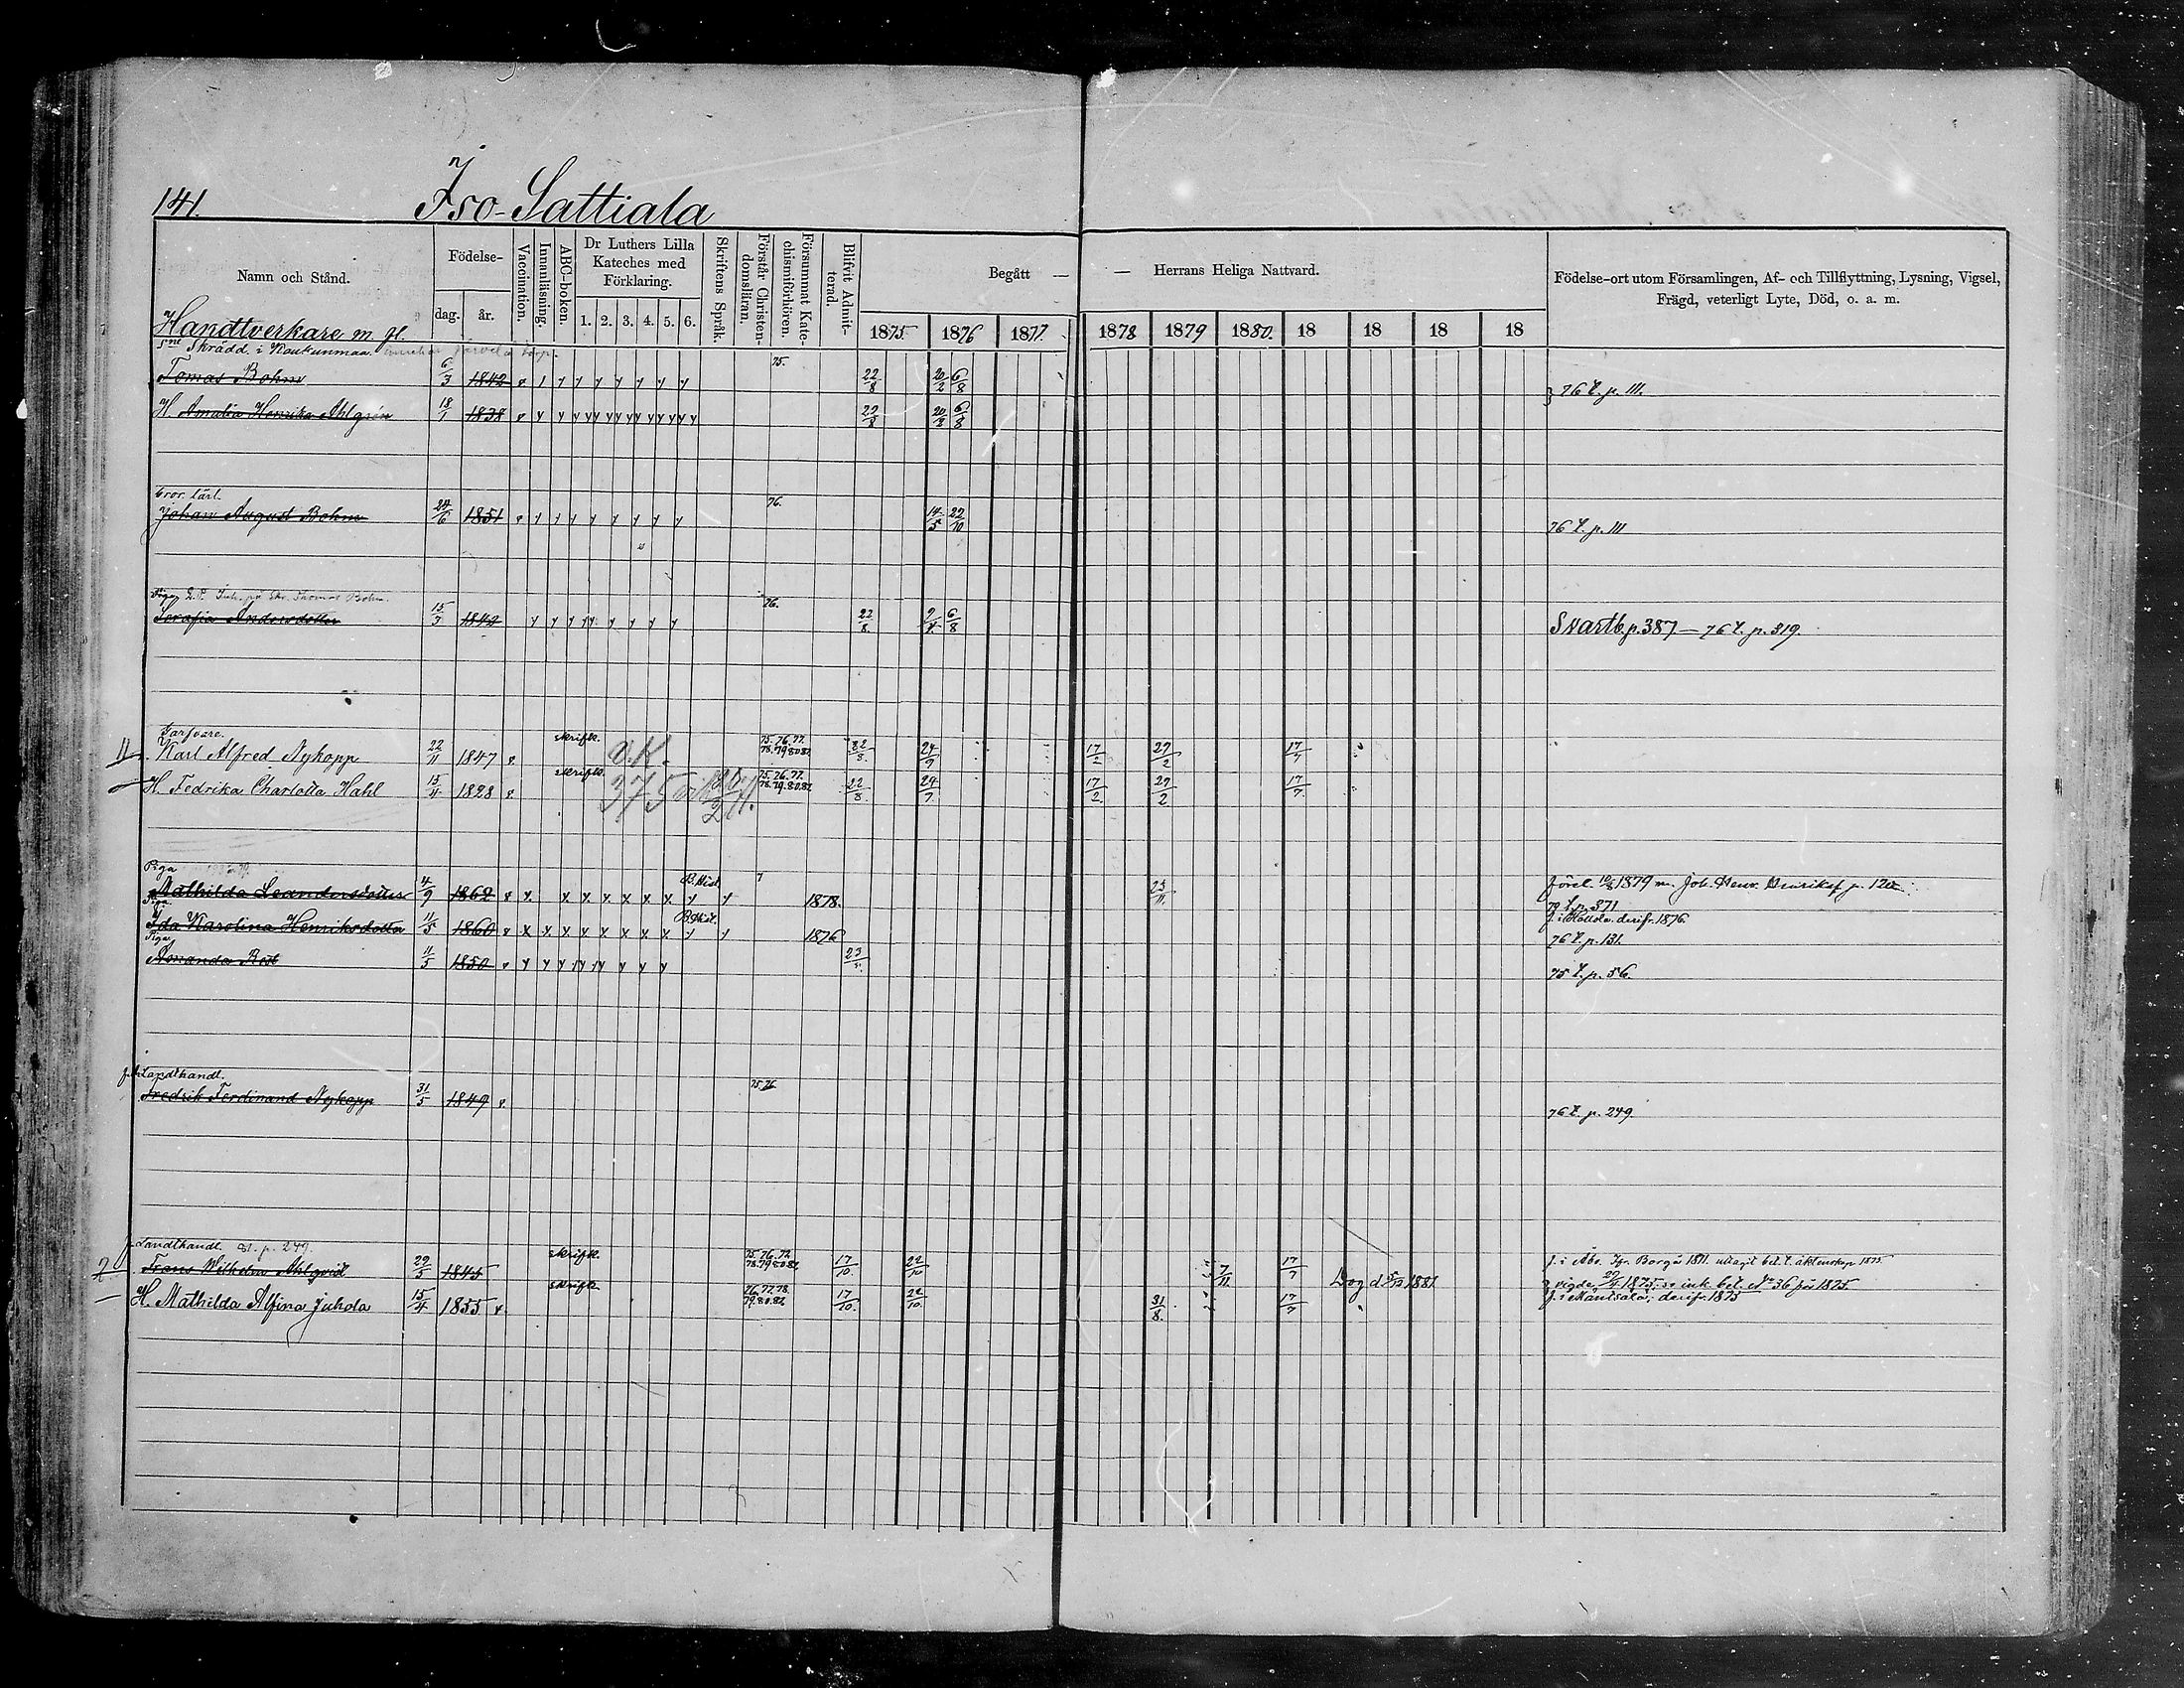 141.
Iso-Sattiala
Namn och Stånd.
Födelse-
dag. år.
Vaccination.
Innanläsning.
ABC-boken.
Dr Luthers Lilla Kateches med Förklaring.
1. 2. 3. 4. 5. 6.
Skriftens Språk.
Förstår Christendomsläran.
Försummat Katechismiförhören.
Blifvit Admitterad.
Begått — — Herrans Heliga Nattvard.
1875 1876 1877 1878 1879 1880. 18 18 18 18
Födelse-ort utom Församlingen, Af- och Tillflyttning, Lysning, Vigsel, Frägd, veterligt Lyte, Död, o. a. m.
Handtverkare m. fl.
Skrädd. i Kaukunmaa
Tomas Bohm 6/3 1842 75. 22/8 20/2 6/8 76 t. p. 111.
H. Amalia Henrika Ahlgrén 18/1 1838 22/8 20/2 6/8
Johan August Bohm 24/6 1851 76. 14/5 22/10 76 t. p. 111
Piga
Serafia Andersdotter 15/7 1842 76. 22/8 9/4 6/8 Svartb. p. 387 — 76 t. p. 319.
Garfvare.
11 Karl Alfred Nykopp 22/11 1847 v. skrifk. 75. 76. 77. 78. 79 80 81. 22/8. 24/9 17/2 27/2 17/7
H. Fedrika Charlotta Hahl 1828 v. skrifk. 375 75. 76. 77. 78. 79. 80. 81. 22/8. 24/7 17/2 27/2 17/7
Piga
Mathilda Leandersdotter 4/9 1862 B. Hist. 1878. 23/11. 1879 m. Joh. Henr. Henriksf p. 79 t. p. 371
Piga
Ida Karolina Henriksdotter 11/5 1860 B. Hist. 1876 f. i Hollola. derifr. 1876. 76 t. p. 131.
Piga
Amanda 11/5 1850 75 t. p. 56.
Landthandl.
Fredrik Ferdinand Nykopp 31/5 1849 v. 75. 76. 76 t. p. 249.
Landthandl. p. 249.
2 Frans Wilhelm Ahlqvist 29/5 1845 skrifk. 75. 76. 77. 78. 79 80 81. 17/10. 22/10 7/11. 17/7 Dog d. 5/10 1881 f. i Åbo. Borgå 1871. uttagit bet. t. äktenskap 1875.
vigde 1875; inl. bet. No 36 för 1875.
H. Mathilda Alfina Juhola 15/4 1855 v. skrifk. 76. 77. 78. 79. 80. 81. 17/10. 22/10. 31/8. 17/7 f. i Mäntsälä; derifr. 1875